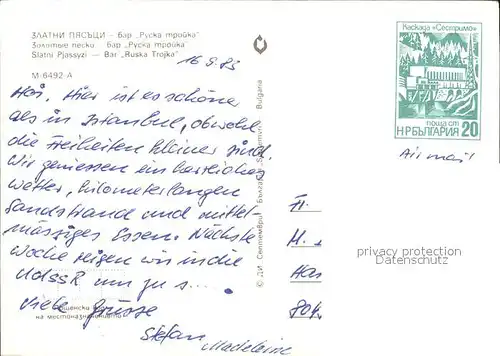 ЗЛАТНИ ПЯСЪЦИ — бар „Руска тройка"
Золотые пески бар „Руска тройка"
Slatni Pjassyzi — Bar „Ruska Trojka"
М-6492-А
16.9.83
Hoi, Hier ist es schöne
als in Istanbul, obwohl
die Freiheiten kleiner sind.
Wir geniessen ein herrliches
Wetter, kilometerlangen
Sandstrand und mittel
mässiges Essen. Nächste
Woche reisen wir in die
UdSSR
Viele Grüsse
Stefan
Madeleine
на местоназначението
© ДИ „Септември" България Bulgaria
Каскада „Сестримо"
поща ст
НР БЪЛГАРИЯ 20
Air mail
H.
Ha
804
privacy protection
by veikkos.com